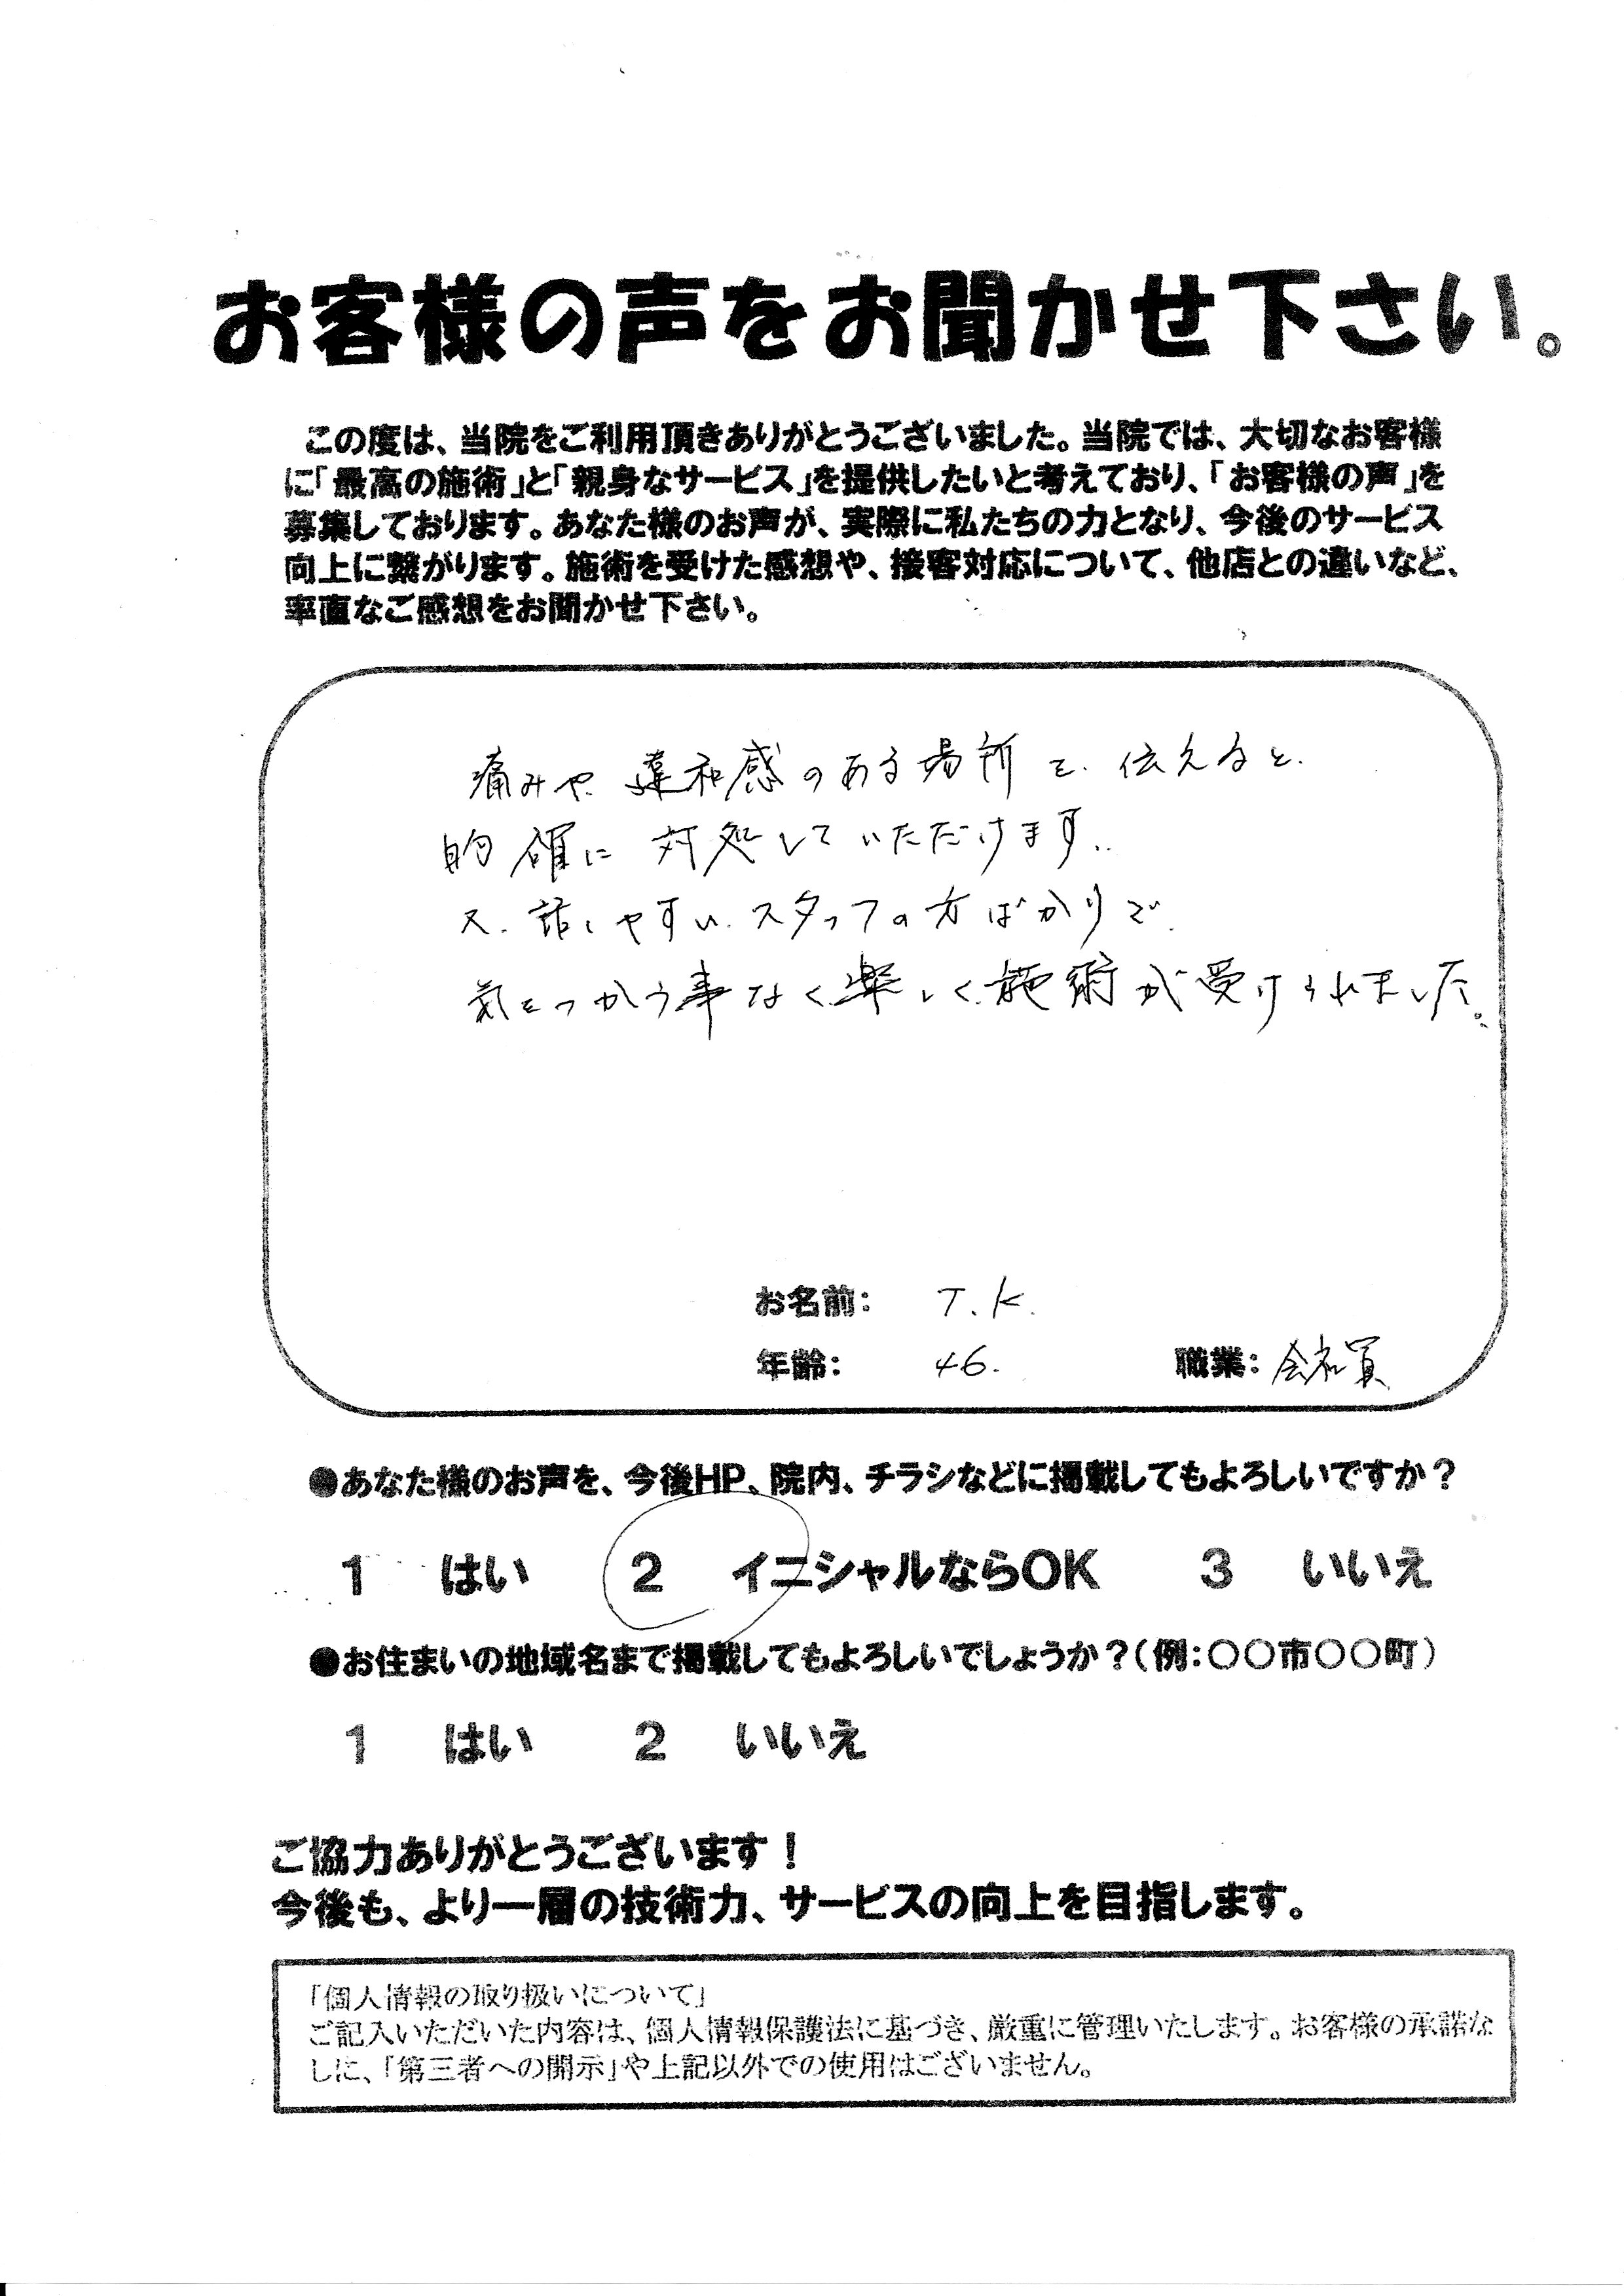 お客様の声をお聞かせ下さい。
この度は、当院をご利用頂きありがとうございました。当院では、大切なお客様
に「最高の施術」と「親身なサービス」を提供したいと考えており、「お客様の声」を
募集しております。あなた様のお声が、実際に私たちの力となり、今後のサービス
向上に繋がります。施術を受けた感想や、接客対応について、他店との違いなど、
率直なご感想をお聞かせ下さい。
痛みや違和感のある場所を、伝えると、
的確に対処していただけます。
又、話しやすい、スタッフの方ばかりで、
気をつかう事なく、楽しく、施術が受けられました。
お名前： T.K.
年齢： 46. 職業：会社員
●あなた様のお声を、今後HP、院内、チラシなどに掲載してもよろしいですか？
1 はい 2 イニシャルならOK 3 いいえ
●お住まいの地域名まで掲載してもよろしいでしょうか？（例：〇〇市〇〇町）
1 はい 2 いいえ
ご協力ありがとうございます！
今後も、より一層の技術力、サービスの向上を目指します。
「個人情報の取り扱いについて」
ご記入いただいた内容は、個人情報保護法に基づき、厳重に管理いたします。お客様の承諾な
しに、「第三者への開示」や上記以外での使用はございません。